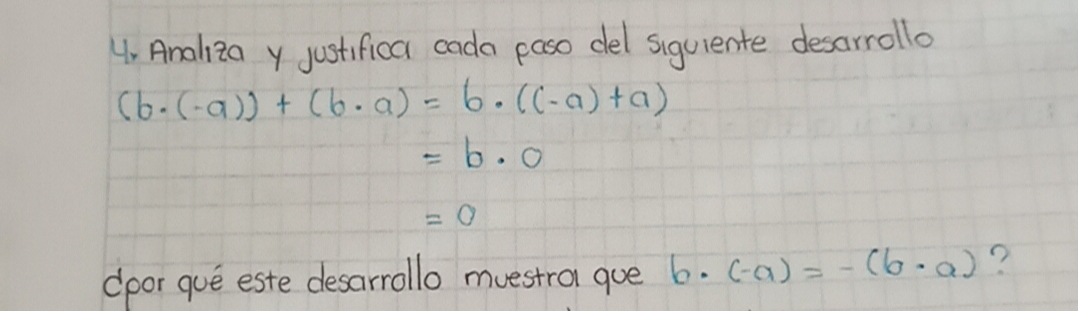 4. Analiza y justifica cada paso del siguiente desarrollo
(b·(-a)) + (b·a) = b·((-a)+a)
= b·0
= 0
¿por qué este desarrollo muestra que b·(-a) = -(b·a)?